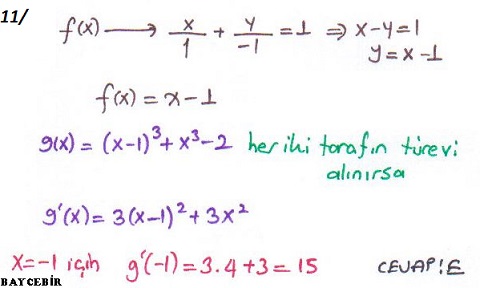 11/
f(x) ⟶ x/1 + y/-1 = 1 ⇒ x-y=1
y=x-1
f(x) = x-1
g(x) = (x-1)³+x³-2 her iki tarafın türevi
alınırsa
g'(x) = 3(x-1)²+3x²
x=-1 için g'(-1) = 3.4+3=15 CEVAP:E
BAYCEBİR